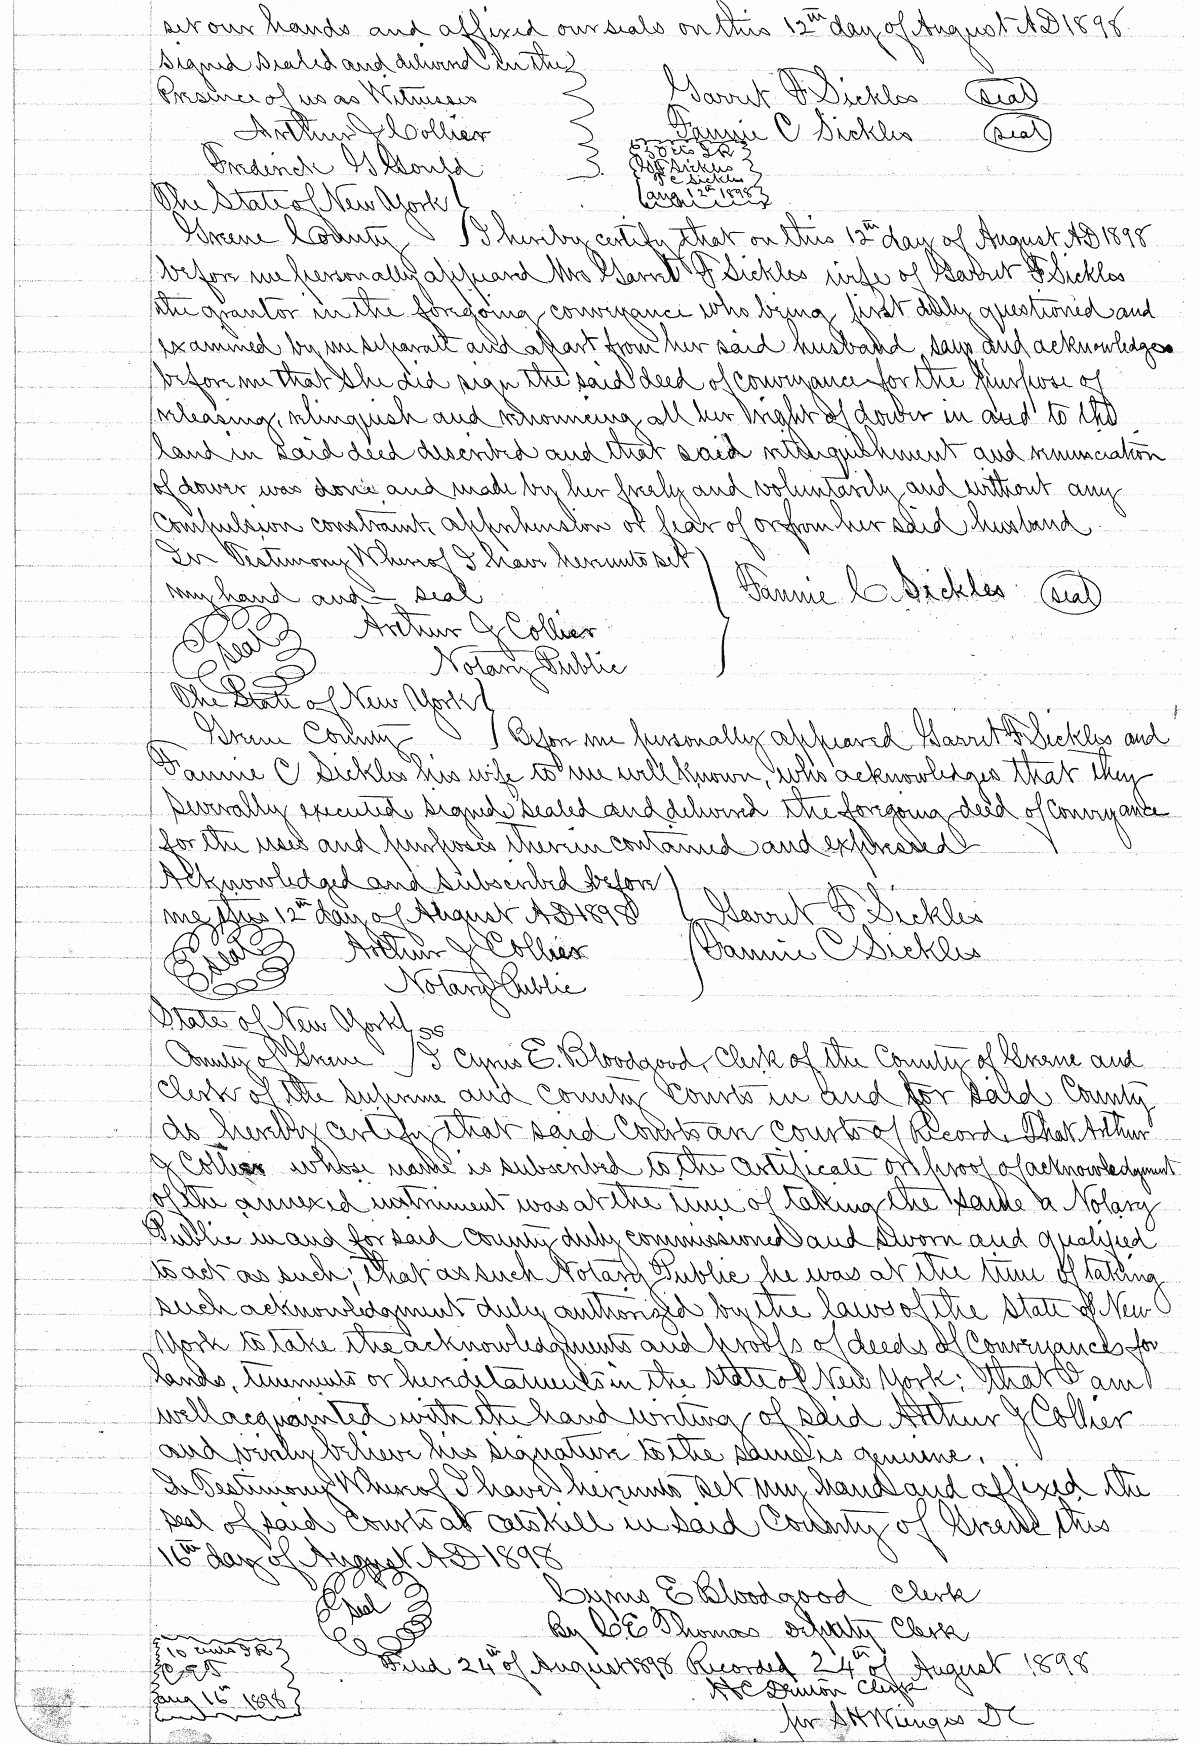 set our hands and affixed our seals on this 12th day of August AD 1898
Signed Sealed and delivered in the
Presence of us as Witnesses
Garrit F Sickles (seal)
Arthur J Collier
Fannie C Sickles (seal)
Frederick G Gould
50 cts I R
G F Sickles
F C Sickles
aug 12th 1898
The State of New York
Greene County I hereby certify that on this 12th day of August AD 1898
before me personally appeared Mrs Garrit F Sickles wife of Garrit F Sickles
the grantor in the foregoing conveyance who being first duly questioned and
examined by me separate and apart from her said husband, says and acknowledges
before me that she did sign the said deed of conveyance for the purpose of
releasing, relinquish and renouncing all her right of dower in and to the
land in said deed described and that said relinquishment and renunciation
of dower was done and made by her freely and voluntarily and without any
Compulsion constraint, apprehension or fear of or from her said husband
In Testimony Whereof I have hereunto set
my hand and – seal
Fannie C Sickles (seal)
Seal
Arthur J Collier
Notary Public
The State of New York
Greene County Before me personally appeared Garrit F Sickles and
Fannie C Sickles his wife to me well known, who acknowledges that they
severally executed, signed, sealed and delivered the foregoing deed of Conveyance
for the uses and purposes therein contained and expressed
Acknowledged and subscribed before
me this 12th day of August AD 1898
Garrit F. Sickles
Seal
Arthur J Collier
Fannie C Sickles
Notary Public
State of New York ss
County of Greene I Cyrus E. Bloodgood, Clerk of the County of Greene and
Clerk of the supreme and county Courts in and for said County
do hereby certify that said Courts are courts of Record. That Arthur
J Collier whose name is subscribed to the certificate or proof of acknowledgment
of the annexed instriment was at the time of taking the same a Notary
Public in and for said county duly commissioned and sworn and qualified
to act as such; that as such Notary Public he was at the time of taking
such acknowledgment duly authorized by the laws of the State of New
York to take the acknowledgments and proofs of deeds of Conveyances for
lands, tenements or hereditaments in the state of New York; that I am
well acquainted with the hand writing of said Arthur J Collier
and verily believe his signature to the same is genuine.
In Testimony Whereof I have hereunto set my hand and affixed the
seal of said Courts at catskill in said County of Greene this
16th day of August AD 1898
Seal
Cyrus E Bloodgood Clerk
By C E Thomas Deputy Clerk
10 cents I R
Filed 24th of August 1898 Recorded 24th of August 1898
aug 16th 1898
Clerk
for
D C